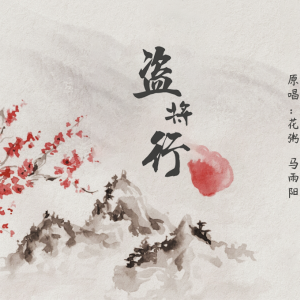 盗将行
原唱：花粥 马雨阳